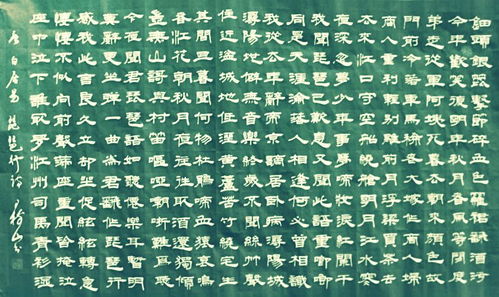 鈿頭銀篦擊節碎血色羅裙翻酒污
今年歡笑復明年秋月春風等閒度
弟走從軍阿姨死暮去朝來顏色故
門前冷落鞍馬稀老大嫁作商人婦
商人重利輕別離前月浮梁買茶去
去來江口守空船繞艙明月江水寒
夜深忽夢少年事夢啼妝淚紅闌干
我聞琵琶已嘆息又聞此語重唧唧
同是天涯淪落人相逢何必曾相識
我從去年辭帝京謫居臥病潯陽城
潯陽地僻無音樂終歲不聞絲竹聲
住近湓城地低濕黃蘆苦竹繞宅生
其間旦暮聞何物杜鵑啼血猿哀鳴
春江花朝秋月夜往往取酒還獨傾
豈無山歌與村笛嘔啞嘲哳難為聽
今夜聞君琵琶語如聽仙樂耳暫明
莫辭更坐彈一曲為君翻作琵琶行
感我此言良久立卻坐促絃絃轉急
淒淒不似向前聲滿座重聞皆掩泣
座中泣下誰最多江州司馬青衫濕
唐白居易琵琶行詩